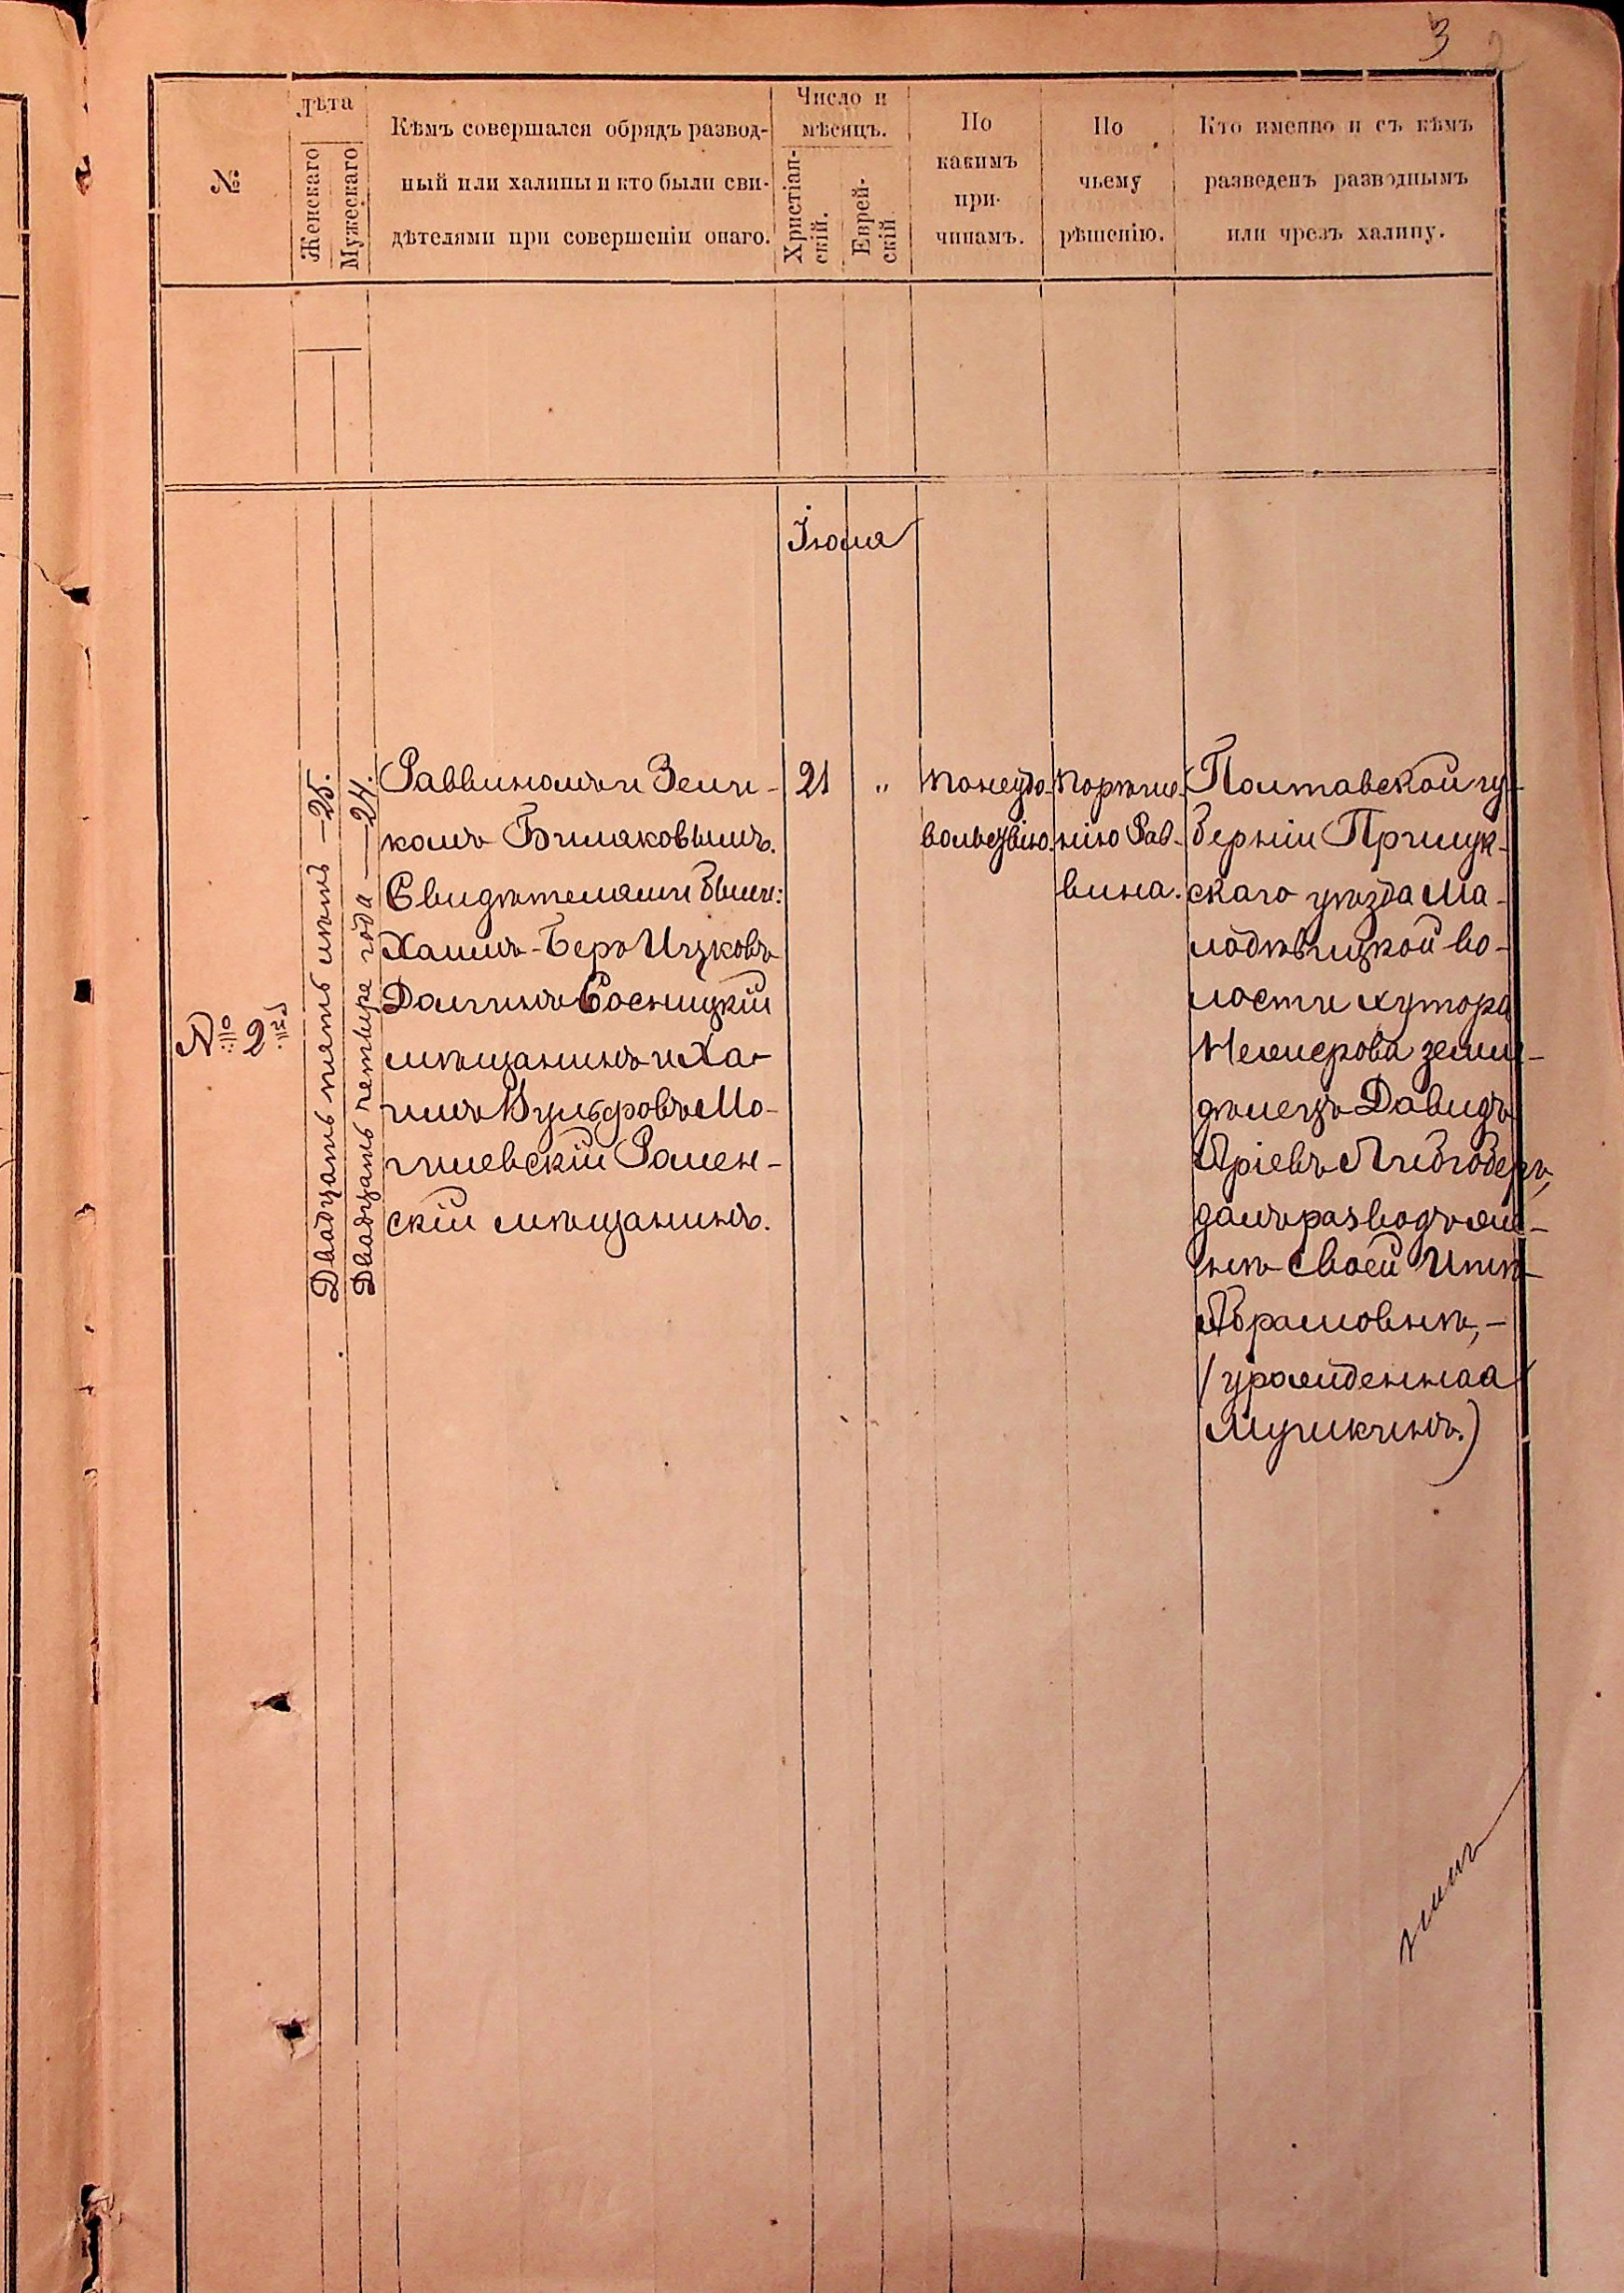 3
№
Лѣта
Женскаго
Мужескаго
Кѣмъ совершался обрядъ развод-
ный или халицы и кто были сви-
дѣтелями при совершеніи онаго.
Число и
мѣсяцъ.
Христіан-
скій.
Еврей-
скій
По
какимъ
при-
чинамъ.
По
чьему
рѣшенію.
Кто именно и съ кѣмъ
разведенъ разводнымъ
или чрезъ халицу.
Іюля
№ 2й
Двадцать пять лѣтъ — 25.
Двадцать четыре года — 24.
Раввиномъ и Зели-
комъ Биляковымъ.
Свидѣтелями были:
Хаимъ-Беръ Ицковъ
Долгинъ Сосницкій
мѣщанинъ и Ха-
имъ Мо-
гилевскій Ромен-
скій мѣщанинъ.
21
"
По неудо-
вольствію.
По рѣше-
нію Рав-
вина.
Полтавской гу-
берніи Прилук-
скаго уѣзда Ма-
лодѣвицкой во-
лости хутора
земле-
дѣлецъ Давидъ
Аріевъ
далъ разводъ же-
нѣ своей
Абрамовнѣ, —
(урожденная
Мучикчинъ.)